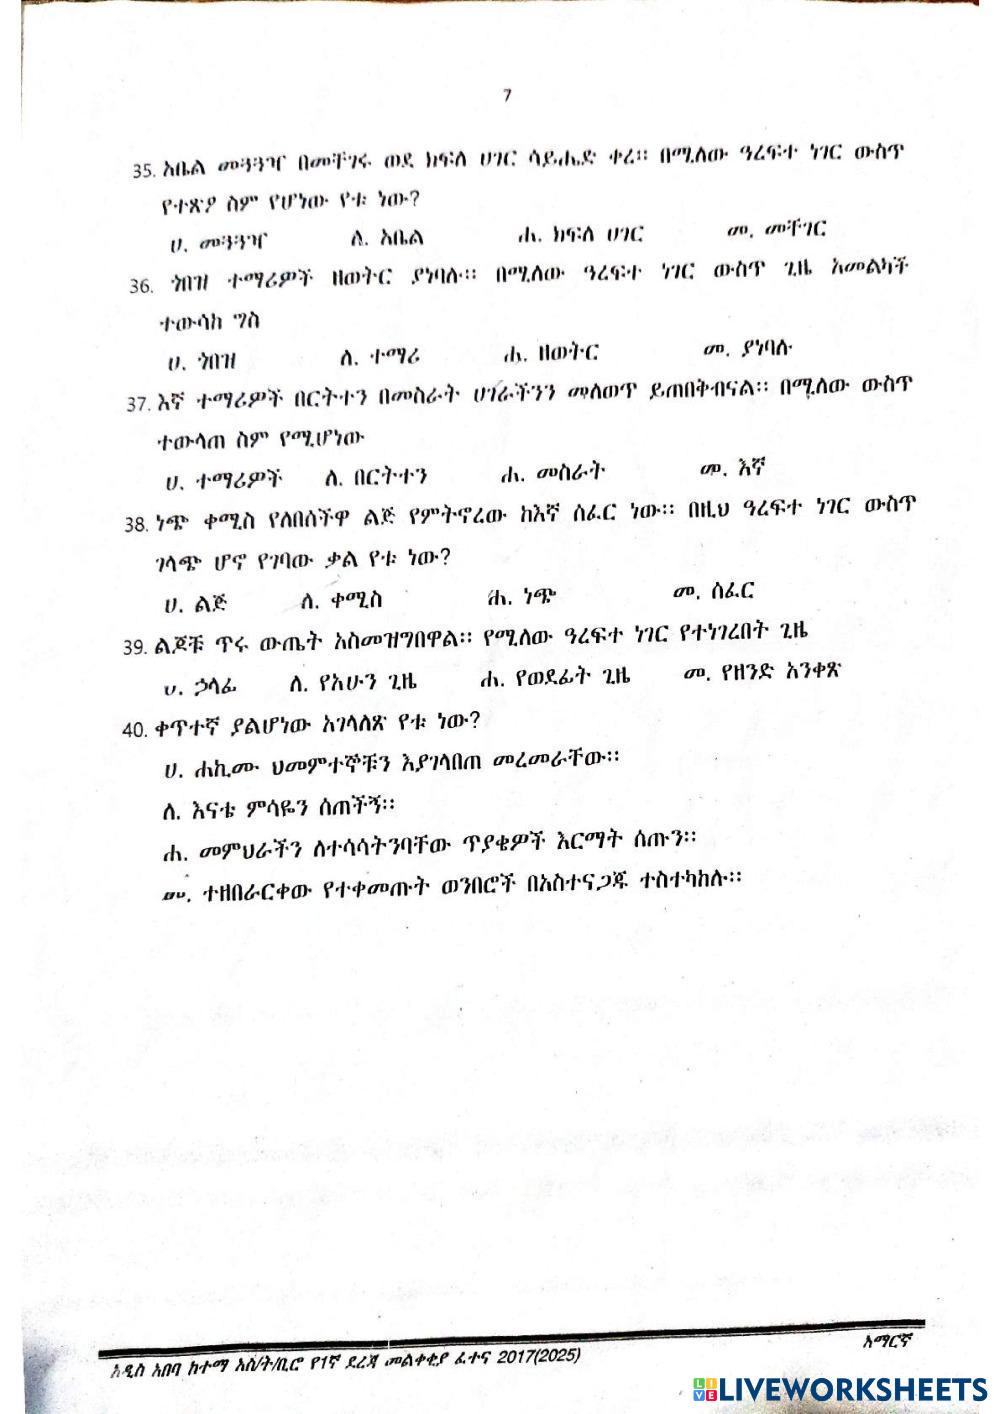 7
35. አቤል መጓጓዣ በመቸገሩ ወደ ክፍለ ሀገር ሳይሔድ ቀረ። በሚለው ዓረፍተ ነገር ውስጥ
የተጽያ ስም የሆነው የቱ ነው?
ሀ. መጓጓዣ ለ. አቤል ሐ. ክፍለ ሀገር መ. መቸገር
36. ጎበዝ ተማሪዎች ዘወትር ያነባሉ። በሚለው ዓረፍተ ነገር ውስጥ ጊዜ አመልካች
ተውሳከ ግስ
ሀ. ጎበዝ ለ. ተማሪ ሐ. ዘወትር መ. ያነባሉ
37. እኛ ተማሪዎች በርትተን በመስራት ሀገራችንን መለወጥ ይጠበቅብናል። በሚለው ውስጥ
ተውላጠ ስም የሚሆነው
ሀ. ተማሪዎች ለ. በርትተን ሐ. መስራት መ. እኛ
38. ነጭ ቀሚስ የለበሰችዋ ልጅ የምትኖረው ከእኛ ሰፈር ነው። በዚህ ዓረፍተ ነገር ውስጥ
ገላጭ ሆኖ የገባው ቃል የቱ ነው?
ሀ. ልጅ ለ. ቀሚስ ሐ. ነጭ መ. ሰፈር
39. ልጆቹ ጥሩ ውጤት አስመዝግበዋል። የሚለው ዓረፍተ ነገር የተነገረበት ጊዜ
ሀ. ኃላፊ ለ. የአሁን ጊዜ ሐ. የወደፊት ጊዜ መ. የዘንድ አንቀጽ
40. ቀጥተኛ ያልሆነው አገላለጽ የቱ ነው?
ሀ. ሐኪሙ ህመምተኞቹን እያገላበጠ መረመራቸው።
ለ. እናቴ ምሳዬን ሰጠችኝ።
ሐ. መምህራችን ለተሳሳትንባቸው ጥያቄዎች እርማት ሰጡን።
መ. ተዘበራርቀው የተቀመጡት ወንበሮች በአስተናጋጁ ተስተካከሉ።
አማርኛ
አዲስ አበባ ከተማ አስ/ት/ቢሮ የ1ኛ ደረጃ መልቀቂያ ፈተና 2017(2025)
LIVEWORKSHEETS